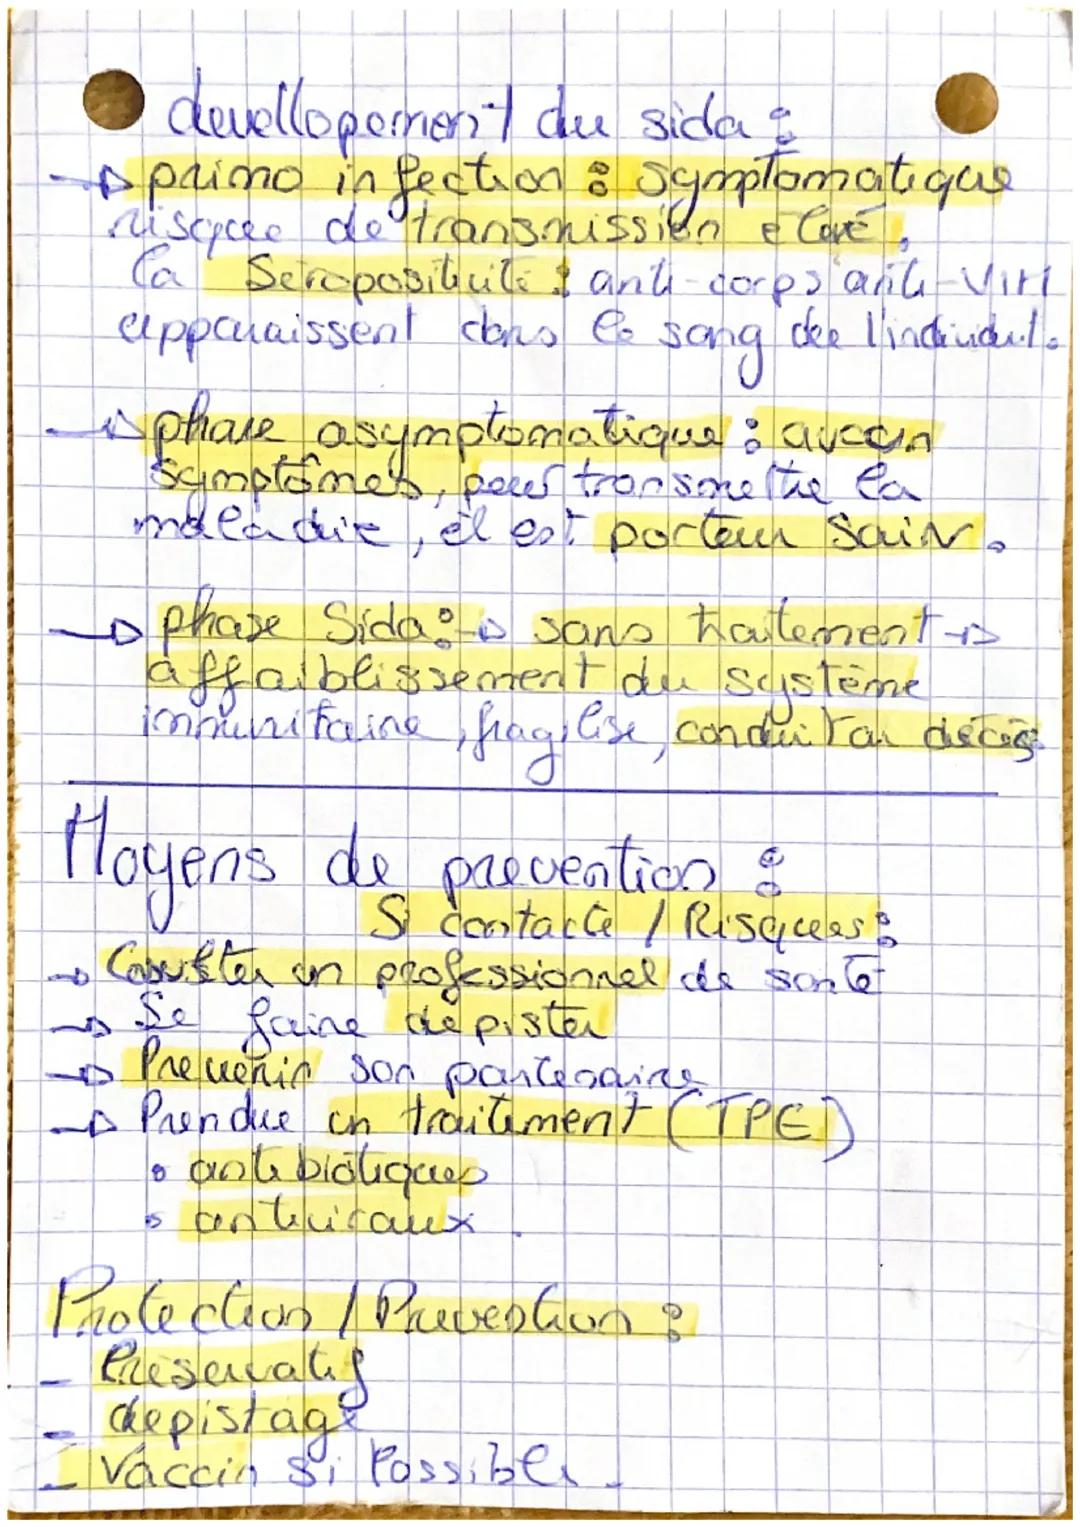 devellopement du sida :
→ primo infection : symptomatique
risque de transmission elevé,
la Séropositivité : anti-corps anti-VIH
apparaissent dans le sang de l'individu.
→ phase asymptomatique : aucun
symptômes, peut transmettre la
maladie, il est porteur sain.
→ phase Sida : → sans traitement →
affaiblissement du système
immunitaire, fragilise, conduit au décès
Moyens de prevention :
Si contacte / Risques :
→ Consulter un professionnel de santé
→ Se faire dépister
→ Prevenir son partenaire
→ Prendre un traitement (TPE)
• antibiotiques
• antiviraux.
Protection / Prevention :
- Préservatif
- depistage
- Vaccin si Possible.